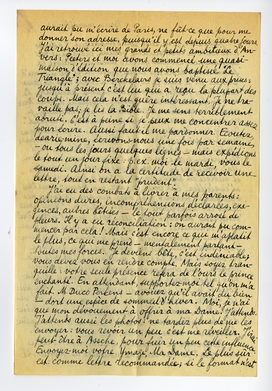 aurait pu m'écrire de Paris, ne fût-ce que pour me
donner son adresse, puisqu'il y est depuis quatre jours
J'ai retrouvé ici mes grands et petits ambitieux d'An-
vers: Peeters et moi avons commencé une quasi-
maison d'édition que nous avons baptisée "Le
Triangle"; avec Berckelaers je suis venu aux prises:
jusqu'à présent c'est lui qui a reçu la plupart des
coups. Mais cela n'est guère intéressant. Je ne tra-
vaille pas, je lis la Je me sens terriblement
abruti. C'est à peine si je peux me concentrer assez
pour écrire. Aussi faut-il me pardonner. Ecoutez,
dearie mine, écrivons-nous une fois par semaine,
- ou tous les jours quelques lignes - mais expédions
le tout un jour fixe: p.ex. moi le mardi, vous le
samedi. Ainsi on a la certitude de recevoir une
lettre, tout en restant "prudent".
J'ai eu des combats à livrer à mes parents:
opinions dures, incompréhensions déclarées, exi-
gences, autres bêtises - le tout parfois arrosé de
pleurs. Il y a eu réconciliation; on aurait pu com-
mencer par cela! Mais c'est encore ce qui m'abrutit
le plus, ce qui me prend - mentalement parlant -
toutes mes forces. Je deviens bête, c'est indéniable;
vous devez vous en rendre compte. Mais soyez tran-
quille: votre seule présence refera de l'ours le prince
enchanté. En attendant, supportez-moi tel qu'on m'a
fait. M. Duco Perkens a avoué qu'il avait du bien
- dort une espèce de sommeil d'hiver. Moi, je n'ai
que mon dévouement à offrir à ma Dame. J'attends.
J'attends aussi les photos: ne tardez plus de me les
envoyer: vous revoir un peu, c'est me réveiller. J'irai
peut-être à Assche, pour fuir un peu cette influence.
Envoyez-moi votre image, Ma Dame. Le plus sûr
est comme lettre recommandée, si le format n'est